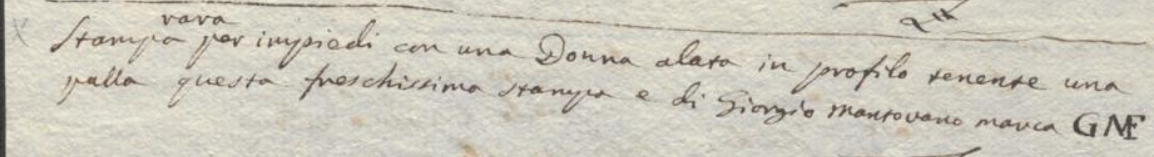 rara
Stampa per impiedi con una Donna alata in profilo tenente una
palla questa freschissima stampa e di Giorgio Mantovano marca GMF